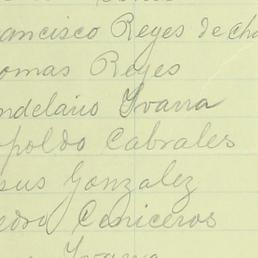 ancisco Reyes de Cha
omas Reyes
ndelario Ivarra
opoldo Cabrales
sus Gonzalez
edro Ceniceros
Ivarra